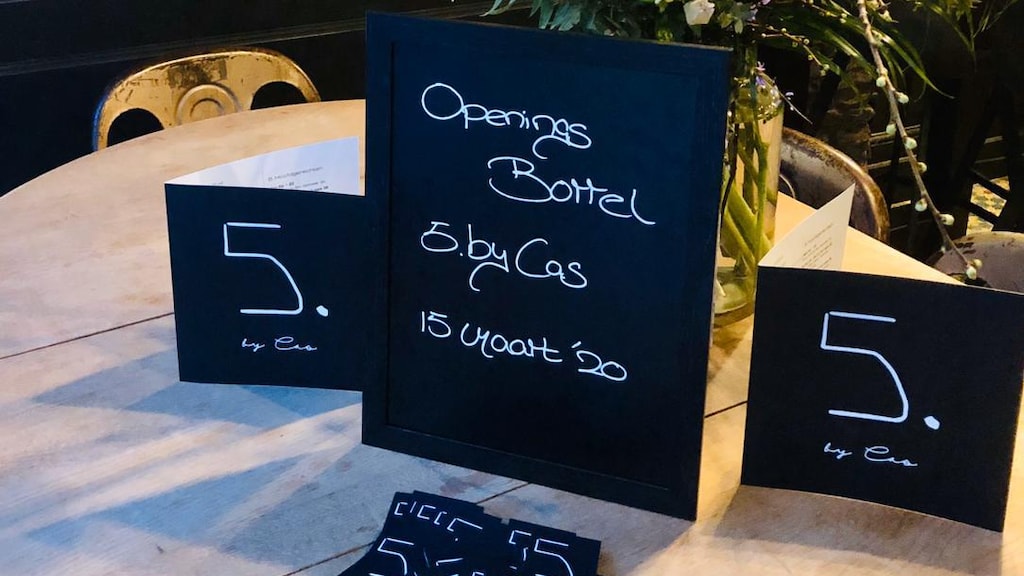 Openings
Borrel
5.by Cas
15 Maart '20
5.
by Cas
5.
by Cas
5
5